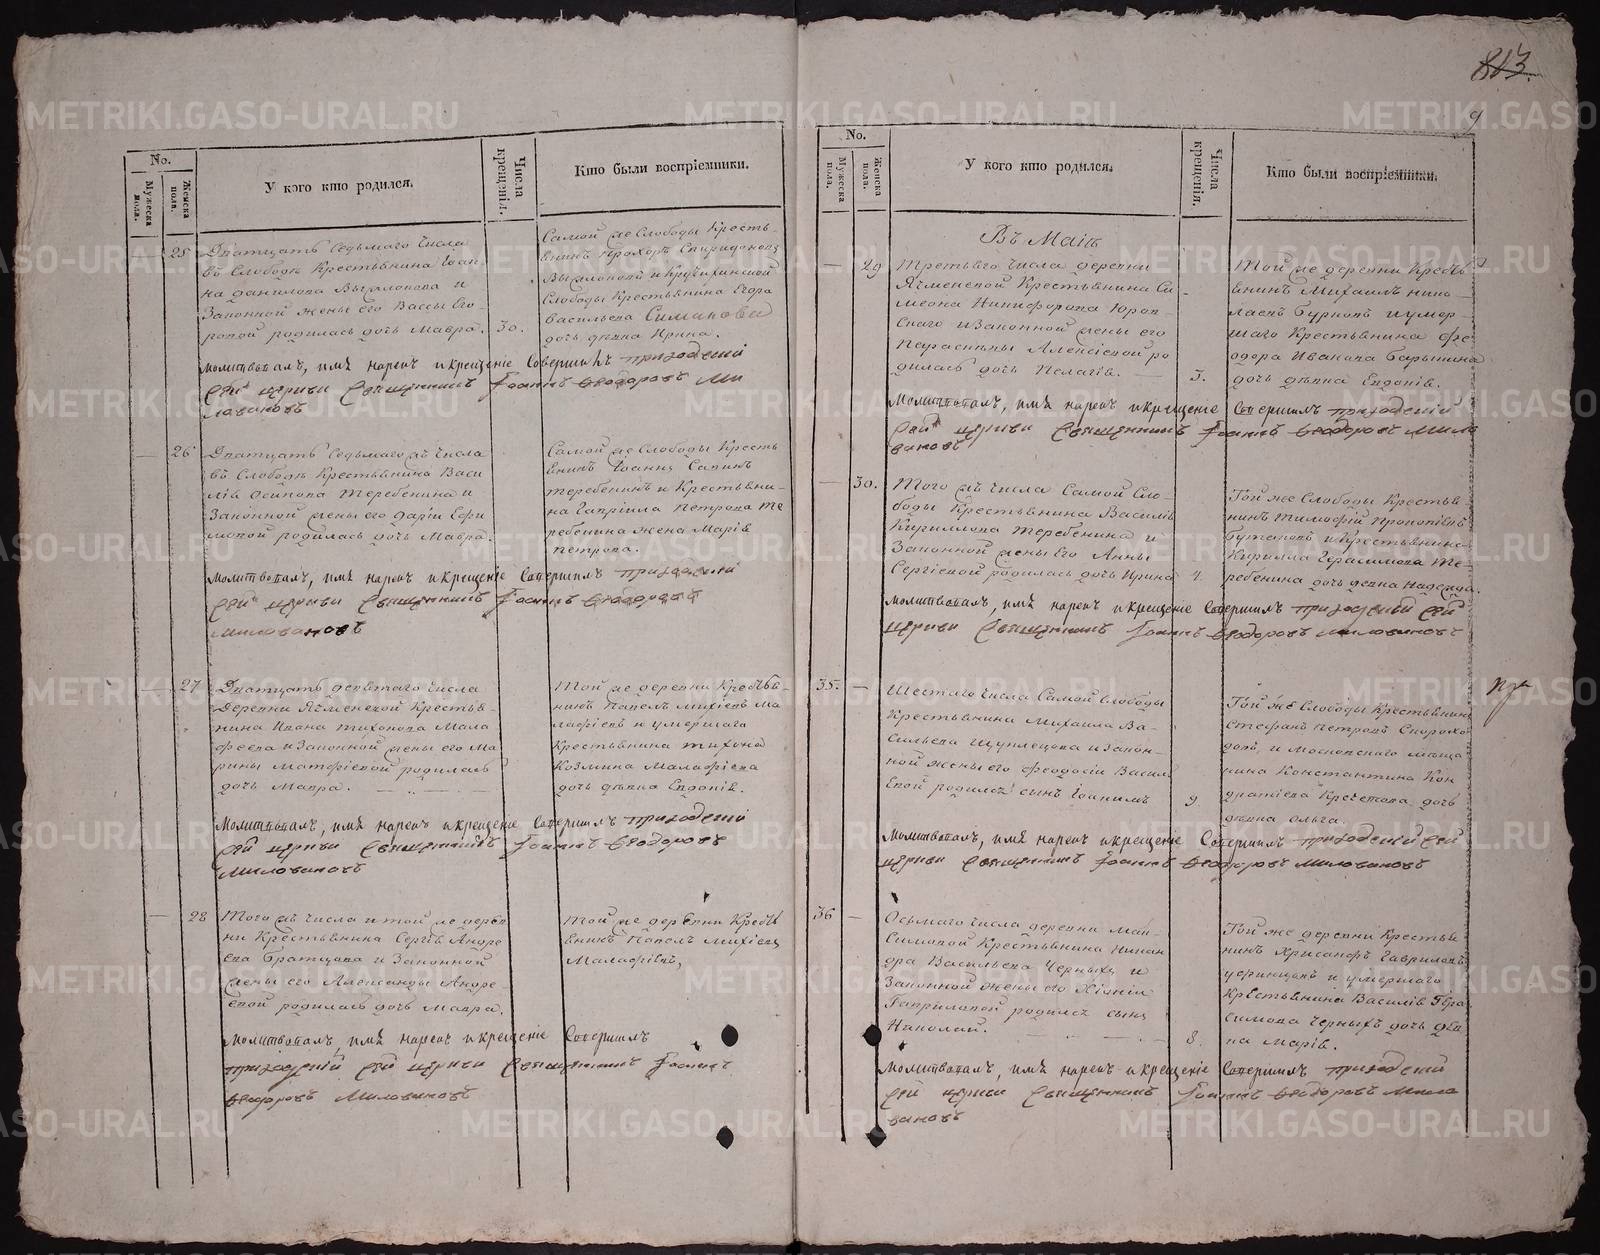 813.
9
No.
Мужеска пола.
Женска пола.
У кого кто родился.
Числа крещенія.
Кто были воспріемники.
25
Дватцать седьмаго числа
въ Слободѣ Крестьянина Іоан
на Данилова
Законной жены его Вассы Его
ровой родилась дочь Мавра.
30.
Самой же Слободы Кресть-
янинъ Прохоръ Спиридоновъ
и
Слободы Крестьянина Егора
Васильева Симанова
дочь дѣвка Ирина.
Молитвовалъ, имя нарекъ и крещеніе Совершилъ приходскій
сей церкви Священникъ Іоаннъ Ѳеодоровъ Ми
ловановъ
26
Дватцать седьмаго жъ числа
въ Слободѣ Крестьянина Васи
лія Осипова Теребенина и
Законной жены его Даріи Ефи
мовой родилась дочь Мавра.
Самой же Слободы Кресть
янинъ Іоаннъ Савинъ
Теребенинъ и Крестьяни-
на Гавріила Петрова Те
ребенина жена Марія
Петрова.
Молитвовалъ, имя нарекъ и крещеніе Совершилъ приходскій
сей церкви Священникъ Іоаннъ Ѳеодоровъ
Миловановъ
27
Дватцать девятаго числа
Деревни Ячменевой Крестья-
нина Ивана Тихонова Мала
феева и Законной жены его Ма
рины Матфіевой родилась
дочь Мавра.
Той же деревни Крестья-
нинъ Павелъ Михѣевъ Ма
лафѣевъ и умершаго
Крестьянина Тихона
Козмина Малафѣева
дочь дѣвка Евдокія.
Молитвовалъ, имя нарекъ и крещеніе Совершилъ приходскій
сей церкви Священникъ Іоаннъ Ѳеодоровъ
Миловановъ
28
Того жъ числа и той же дерев
ни Крестьянина Сергія Андре
ева Братцова и Законной
жены его Александры Андре-
евой родилась дочь Мавра.
Той же деревни Кресть
янинъ Павелъ Михѣевъ
Малафѣевъ,
Молитвовалъ, имя нарекъ и крещеніе Совершилъ
приходскій сей церкви Священникъ Іоаннъ
Ѳеодоровъ Миловановъ
No.
Мужеска пола.
Женска пола.
У кого кто родился.
Числа крещенія.
Кто были воспріемники.
Въ Маіѣ
29
Третьяго числа деревни
Ячменевой Крестьянина Си
меона Никифорова
и Законной жены его
Парасковьи Алексіевой ро
дилась дочь Пелагія.
3.
Той же деревни Кресть
янинъ Михаилъ Нико-
лаевъ Бурковъ и умер-
шаго Крестьянина Ѳе
одора Иванова Барышина
дочь дѣвка Евдокія.
Молитвовалъ, имя нарекъ и крещеніе Совершилъ приходскій
сей церкви Священникъ Іоаннъ Ѳеодоровъ Мило
вановъ
30.
Того жъ числа Самой Сло-
боды Крестьянина Василія
Кириллова Теребенина и
Законной жены его Анны
Сергіевой родилась дочь Ирина
4.
Той же Слободы Крестья-
нинъ Тимофій Прокопіевъ
Бутаковъ и Крестьянина
Кирилла Герасимова Те-
ребенина дочь девка Надежда.
Молитвовалъ, имя нарекъ и крещеніе Совершилъ приходскій сей
церкви Священникъ Іоаннъ Ѳеодоровъ Миловановъ
35.
Шестаго числа Самой Слободы
Крестьянина Михаила Ва-
сильева Щуплецова и Закон-
ной жены его Феодосіи Васил
евой родился сынъ Іоакимъ
9.
Той же Слободы Крестьянинъ
Стефанъ Петровъ Скорохо
довъ, и Московскаго мѣща
нина Константина Кон
дратіева дочь
дѣвка Ольга.
Молитвовалъ, имя нарекъ и крещеніе Совершилъ приходскій сей
церкви Священникъ Іоаннъ Ѳеодоровъ Миловановъ
36
Осьмаго числа деревни Мак-
симовой Крестьянина Никан
дра Васильева Черныхъ и
Законной жены его Хіоніи
Гавриловой родился сынъ
Николай.
8.
Той же деревни Крестья
нинъ Хрисанфъ Гавриловъ
и умершаго
Крестьянина Василія Гера
симова Черныхъ дочь дѣв
ка Марія.
Молитвовалъ, имя нарекъ и крещеніе Совершилъ приходскій
сей церкви Священникъ Іоаннъ Ѳеодоровъ Мило
вановъ
METRIKI.GASO-URAL.RU